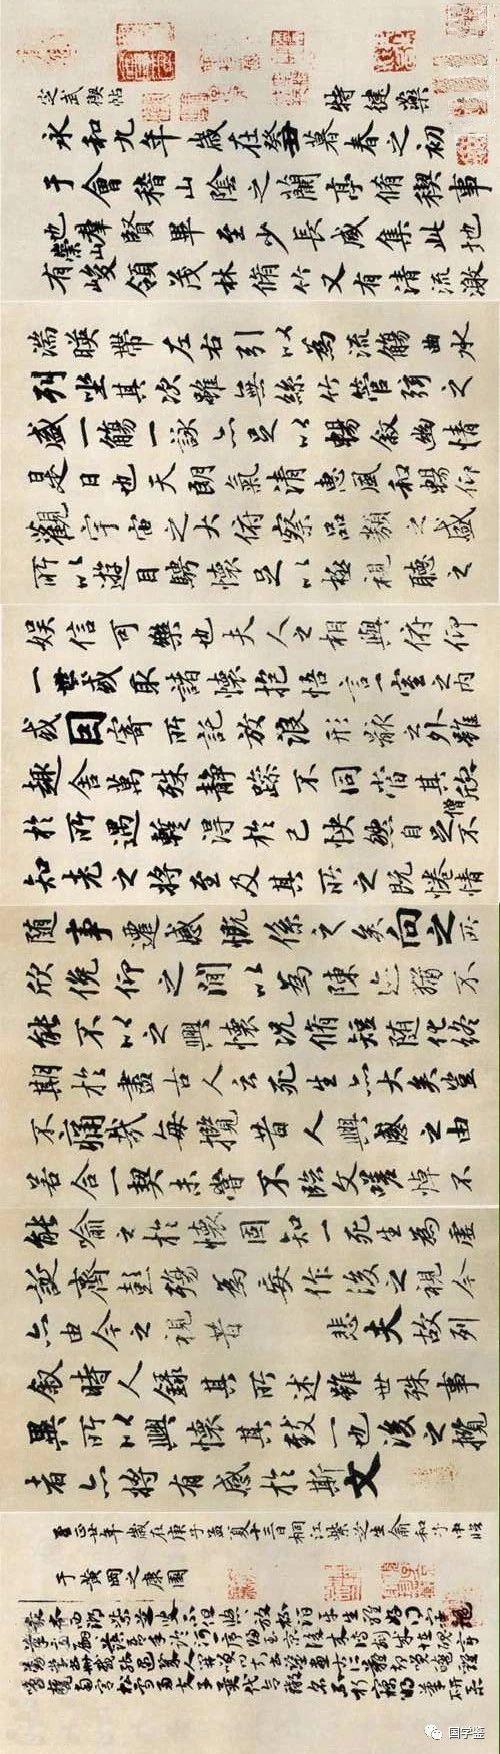 定武禊帖 特健藥
永和九年歲在癸丑暮春之初
于會稽山陰之蘭亭脩稧事
也羣賢畢至少長咸集此地
有崇山峻領茂林脩竹又有清流激
湍暎帶左右引以為流觴曲水
列坐其次雖無絲竹管弦之
盛一觴一詠亦足以暢敘幽情
是日也天朗氣清惠風和暢仰
觀宇宙之大俯察品類之盛
所以遊目騁懷足以極視聽之
娛信可樂也夫人之相與俯仰
一世或取諸懷抱悟言一室之內
或因寄所託放浪形骸之外雖
趣舍萬殊靜躁不同當其欣
於所遇蹔得於己怏然自足不
知老之將至及其所之既惓情
隨事遷感慨係之矣向之所
欣俛仰之間以為陳迹猶不
能不以之興懷況脩短隨化終
期於盡古人云死生亦大矣豈
不痛哉每攬昔人興感之由
若合一契未嘗不臨文嗟悼不
能喻之於懷固知一死生為虛
誕齊彭殤為妄作後之視今
亦由今之視昔 悲夫故列
敘時人錄其所述雖世殊事
異所以興懷其致一也後之攬
者亦將有感於斯文
至正廿年歲在庚子孟夏十三日桐江紫芝生俞和子中臨
于黃岡之康園
国学鉴